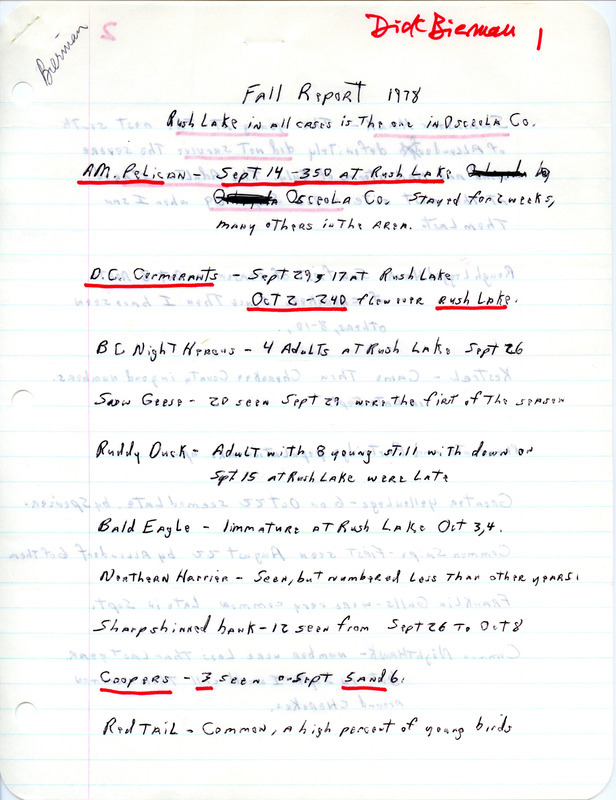 Bierman
2
Dick Bierman 1
Fall Report 1978
Rush Lake in all cases is The one in Osceola Co.
AM. Pelican - Sept 14 - 350 at Rush Lake by
Osceola Co. Stayed for 2 weeks,
many others in the area.
D.C. Cormerants - Sept 29, 17 at Rush Lake
Oct 2 - 240 flew over Rush Lake.
BC Night Herons - 4 Adults at Rush Lake Sept 26
Snow Geese - 20 seen Sept 29 were the first of the season
Ruddy Duck - Adult with 8 young still with down on
Sept 15 at Rush Lake were late
Bald Eagle - 1 immature at Rush Lake Oct 3,4.
Northern Harrier - Seen, but numbered less than other years.
Sharpshinned hawk - 12 seen from Sept 26 to Oct 8
Coopers - 3 seen on Sept 5 and 6.
Red Tail - Common, a high percent of young birds